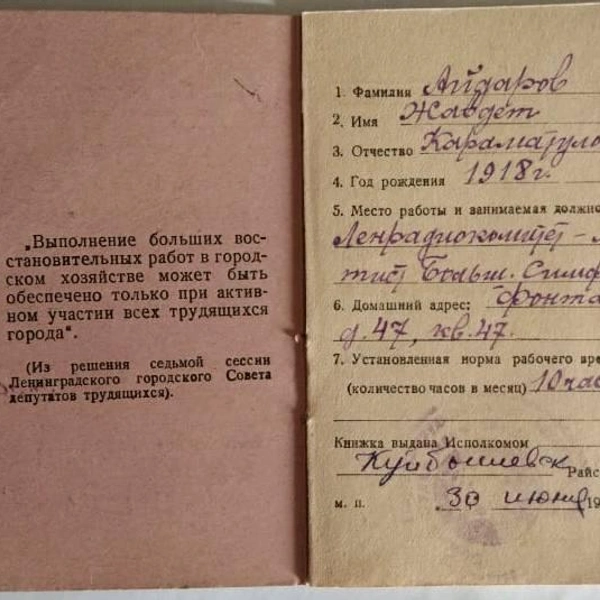 „Выполнение больших вос-
становительных работ в город-
ском хозяйстве может быть
обеспечено только при актив-
ном участии всех трудящихся
города“.
(Из решения седьмой сессии
Ленинградского городского Совета
депутатов трудящихся).
1. Фамилия Айдаров
2. Имя Жавдет
3. Отчество Караматуло
4. Год рождения 1918 г.
5. Место работы и занимаемая должно
Ленрадиокомитет –
тист Больш. Симф
6. Домашний адрес: Фонта
д. 47, кв. 47.
7. Установленная норма рабочего вре
(количество часов в месяц) 10 час
Книжка выдана Исполкомом
Куйбышевск Райс
м. п. 30 июня 19